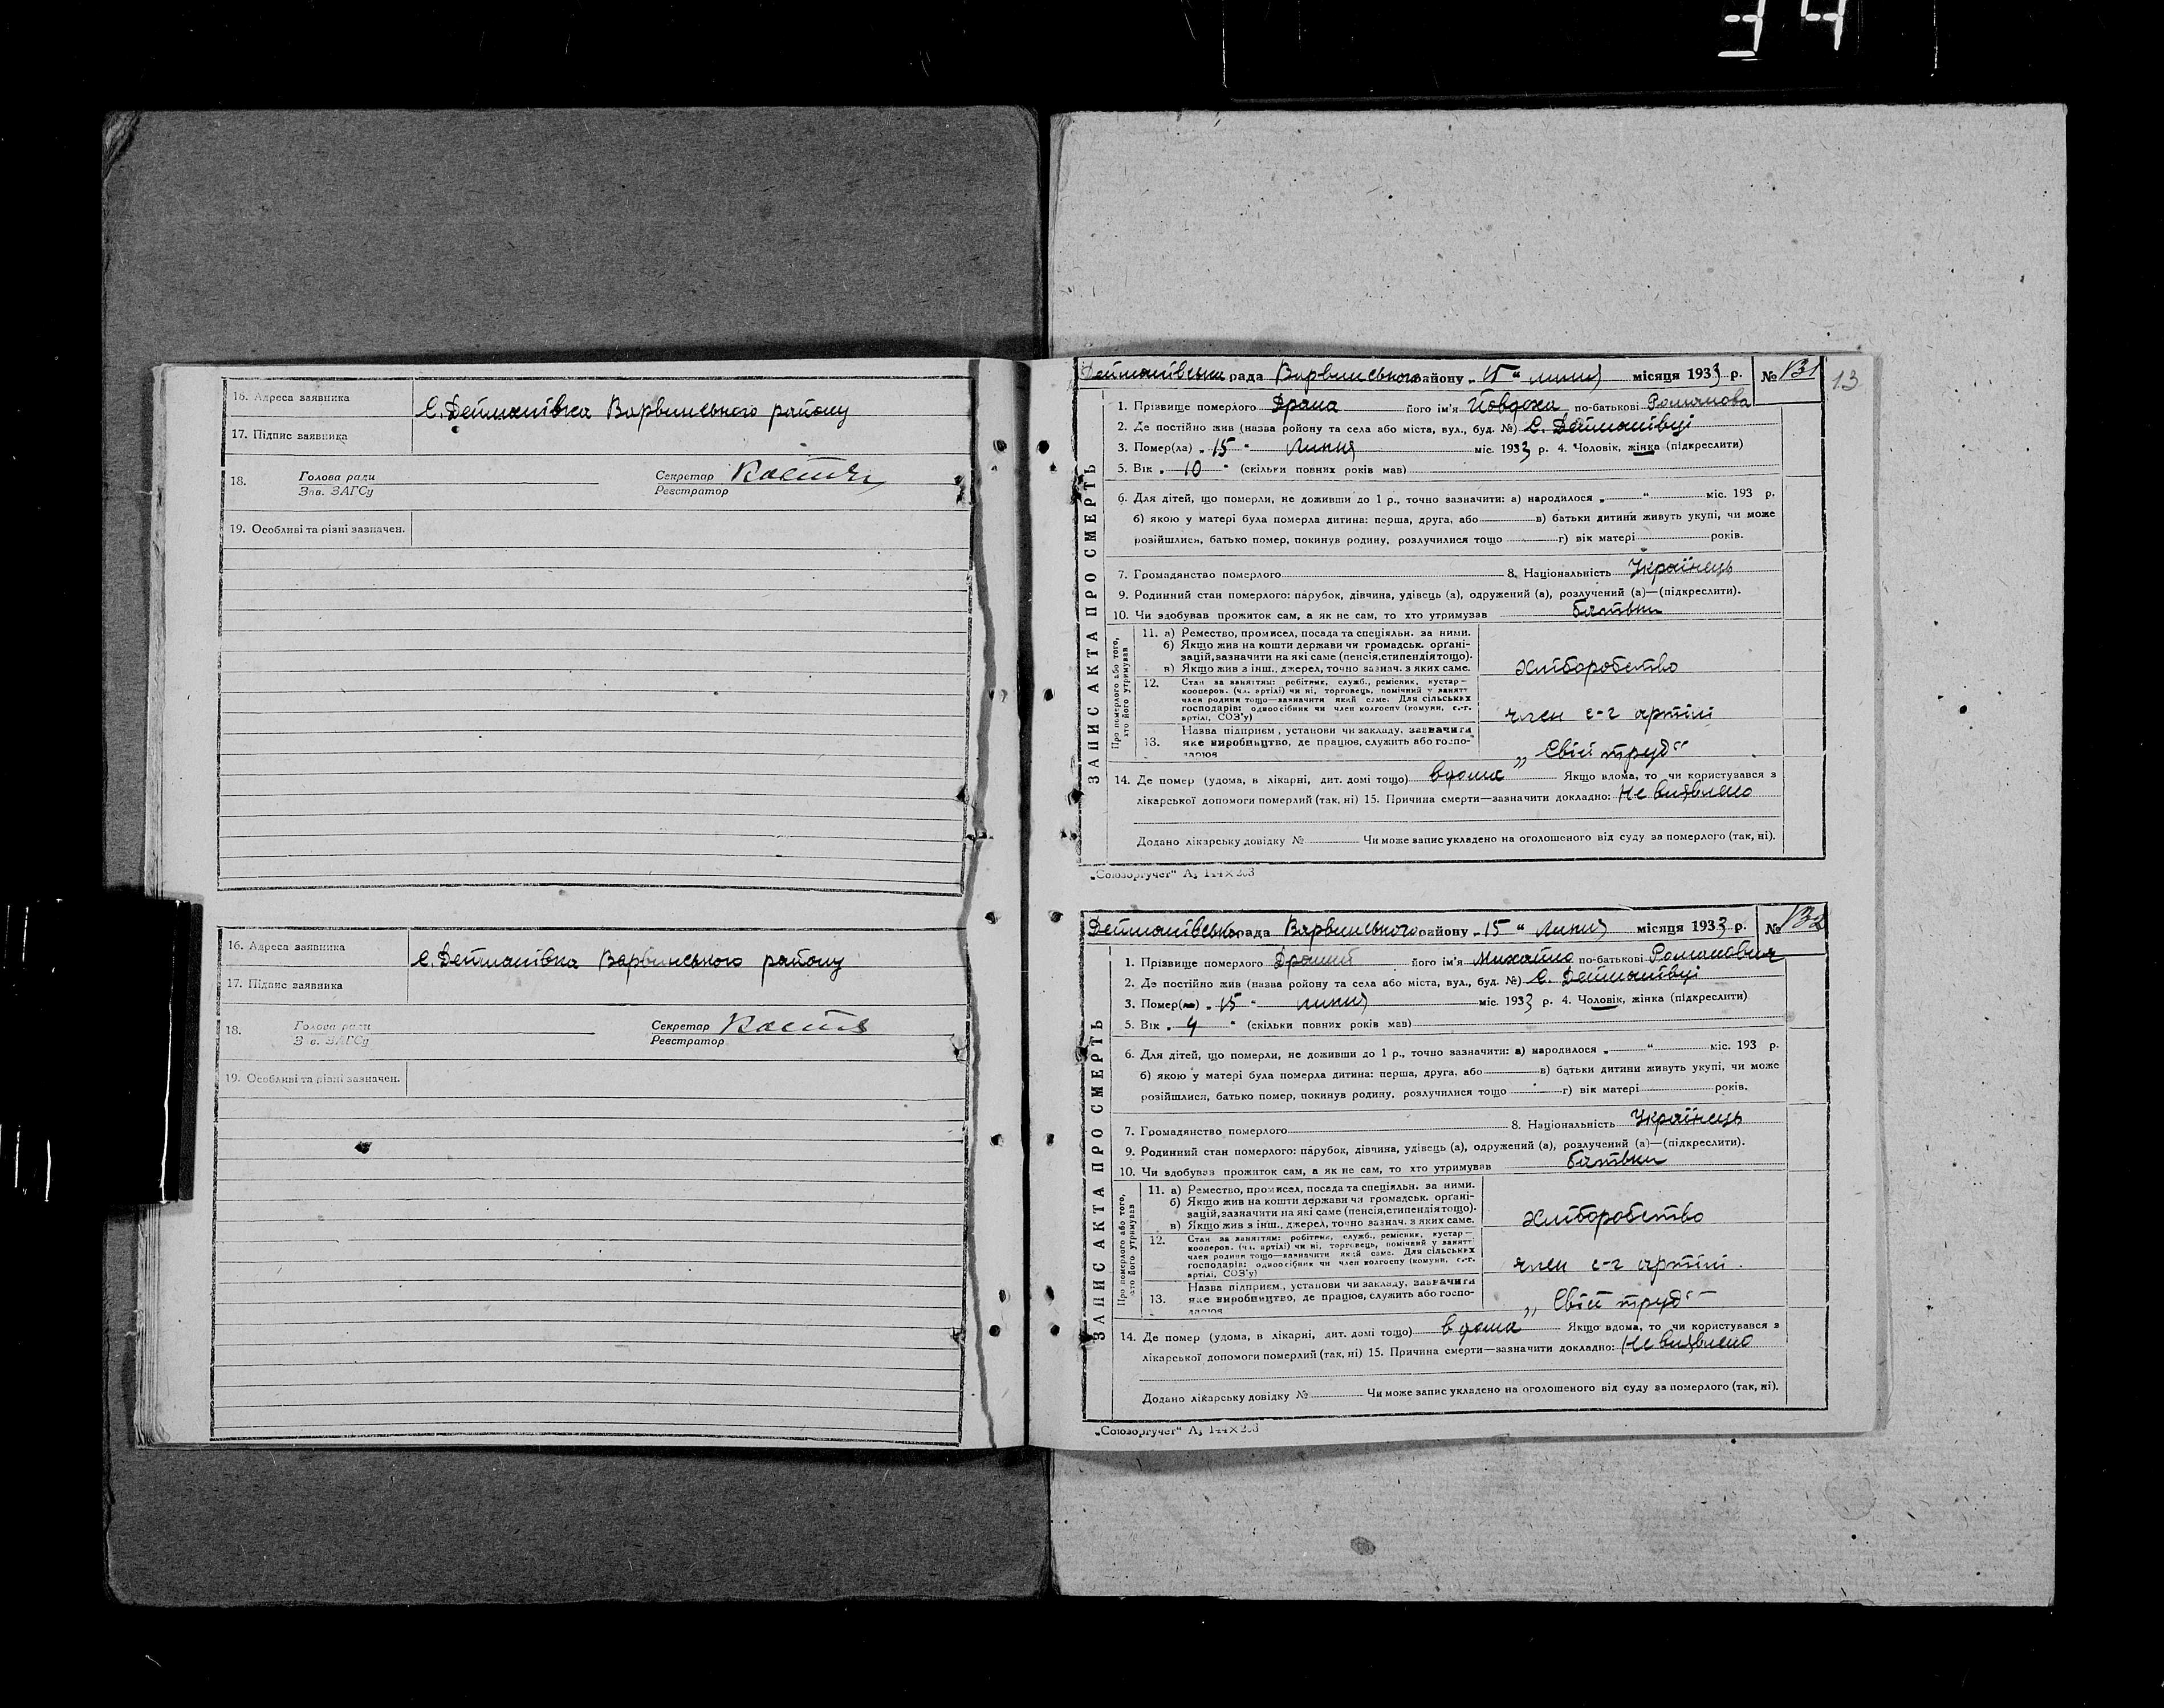 34
16. Адреса заявника
с. Дейманівка Варвинського району
17. Підпис заявника
18. Голова ради
Зав. ЗАГСу
Секретар
Реєстратор
19. Особливі та різні зазначен.
16. Адреса заявника
с. Дейманівка Варвинського району
17. Підпис заявника
18. Голова ради
Зав. ЗАГСу
Секретар
Реєстратор
19. Особливі та різні зазначен.
13
ЗАПИС АКТА ПРО СМЕРТЬ
Дейманівська рада Варвинського району „15“ липня місяця 1933 р. № 131
1. Прізвище померлого його ім'я Йовдоха по-батькові Романова
2. Де постійно жив (назва району та села або міста, вул., буд. №) С. Дейманівці
3. Помер(ла) „15“ липня міс. 1933 р. 4. Чоловік, жінка (підкреслити)
5. Вік „10“ (скільки повних років мав)
6. Для дітей, що померли, не доживши до 1 р., точно зазначити: а) народилося „ “ міс. 193 р.
б) якою у матері була померла дитина: перша, друга, або в) батьки дитини живуть укупі, чи може
розійшлися, батько помер, покинув родину, розлучилися тощо г) вік матері років.
7. Громадянство померлого 8. Національність Українець
9. Родинний стан померлого: парубок, дівчина, удівець (а), одружений (а), розлучений (а)—(підкреслити).
10. Чи здобував прожиток сам, а як не сам, то хто утримував батьки
Про померлого або того, хто його утримував
11. а) Ремество, промисел, посада та спеціяльн. за ними.
б) Якщо жив на кошти держави чи громадськ. органі-
зацій, зазначити на які саме (пенсія, стипендія тощо).
в) Якщо жив з інш., джерел, точно зазнач. з яких саме.
хліборобство
12. Стан за заняттям: робітник, служб., ремісник, кустар—
кооперов. (чл. артілі) чи ні, торговець, помічний у занятт
член родини тощо—зазначити який саме. Для сільських
господарів: одноосібник чи член колгоспу (комуни, с.-г.
артілі, СОЗ'у)
член с-г артілі
13. Назва підприєм, установи чи закладу, зазначити
яке виробництво, де працює, служить або госпо-
дарює
„Свій труд“
14. Де помер (удома, в лікарні, дит. домі тощо) вдома Якщо вдома, то чи користувався з
лікарської допомоги померлий (так, ні) 15. Причина смерти—зазначити докладно: Не виявлено
Додано лікарську довідку № Чи може запис укладено на оголошеного від суду за померлого (так, ні).
„Союзоргучет“
ЗАПИС АКТА ПРО СМЕРТЬ
Дейманівська рада Варвинського району „15“ липня місяця 1933 р. № 132
1. Прізвище померлого його ім'я Михайло по-батькові Романович
2. Де постійно жив (назва району та села або міста, вул., буд. №) С. Дейманівці
3. Помер(ла) „15“ липня міс. 1933 р. 4. Чоловік, жінка (підкреслити)
5. Вік „4“ (скільки повних років мав)
6. Для дітей, що померли, не доживши до 1 р., точно зазначити: а) народилося „ “ міс. 193 р.
б) якою у матері була померла дитина: перша, друга, або в) батьки дитини живуть укупі, чи може
розійшлися, батько помер, покинув родину, розлучилися тощо г) вік матері років.
7. Громадянство померлого 8. Національність Українець
9. Родинний стан померлого: парубок, дівчина, удівець (а), одружений (а), розлучений (а)—(підкреслити).
10. Чи здобував прожиток сам, а як не сам, то хто утримував батьки
Про померлого або того, хто його утримував
11. а) Ремество, промисел, посада та спеціяльн. за ними.
б) Якщо жив на кошти держави чи громадськ. органі-
зацій, зазначити на які саме (пенсія, стипендія тощо).
в) Якщо жив з інш., джерел, точно зазнач. з яких саме.
хліборобство
12. Стан за заняттям: робітник, служб., ремісник, кустар—
кооперов. (чл. артілі) чи ні, торговець, помічний у занятт
член родини тощо—зазначити який саме. Для сільських
господарів: одноосібник чи член колгоспу (комуни, с.-г.
артілі, СОЗ'у)
член с-г артілі.
13. Назва підприєм., установи чи закладу, зазначити
яке виробництво, де працює, служить або госпо-
дарює
„Свій труд“
14. Де помер (удома, в лікарні, дит. домі тощо) вдома Якщо вдома, то чи користувався з
лікарської допомоги померлий (так, ні) 15. Причина смерти—зазначити докладно: Не виявлено
Додано лікарську довідку № Чи може запис укладено на оголошеного від суду за померлого (так, ні).
„Союзоргучет“